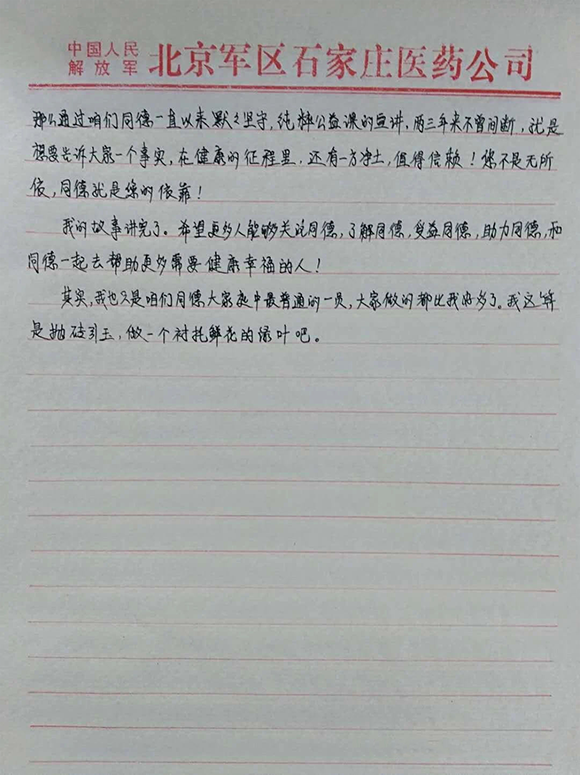 中国人民
解放军
北京军区石家庄医药公司
那么通过咱们同德一直以来默々坚守,纯粹公益课的宣讲,两三年来不曾间断,就是
想要告诉大家一个事实,在健康的征程里,还有一方净土,值得信赖!您不是无所
依,同德就是您的依靠!
我的故事讲完了。希望更多人能够关注同德,了解同德,受益同德,助力同德,和
同德一起去帮助更多需要健康幸福的人!
其实,我也只是咱们同德大家庭中最普通的一员,大家做的都比我好多了。我这算
是抛砖引玉,做一个衬托鲜花的绿叶吧。